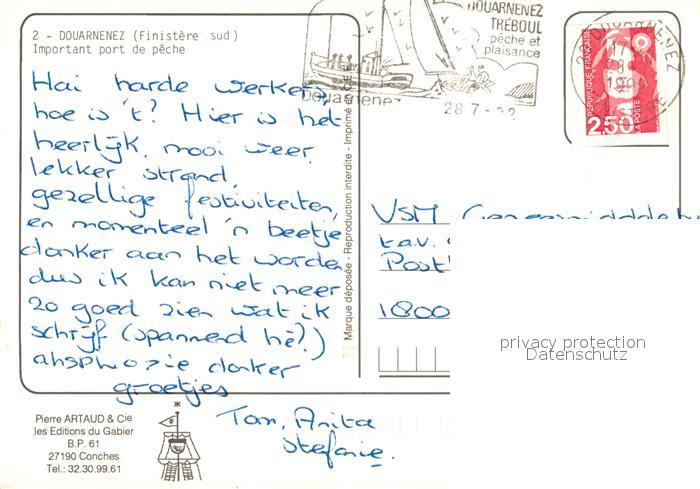 2 - DOUARNENEZ (Finistère sud)
Important port de pêche
Hai harde werkers,
hoe is 't? Hier is het
heerlijk, mooi weer,
lekker strand,
gezellige festiviteiten,
en momenteel 'n beetje
donker aan het worden
dus ik kan niet meer
zo goed zien wat ik
schrijf (spannend hè?)
donker
groetjes
Tom, Anita
Stefanie.
Marque déposée - Reproduction interdite - Imprimé en CEE
DOUARNENEZ
TRÉBOUL
pêche et
plaisance
Douarnenez
28 7 -
DOUARNENEZ
RÉPUBLIQUE FRANÇAISE
2,50
LA POSTE
VSM
t.a.v.
Post
1800
privacy protection
Datenschutz
Pierre ARTAUD & Cie
les Editions du Gabier
B.P. 61
27190 Conches
Tel.: 32.30.99.61